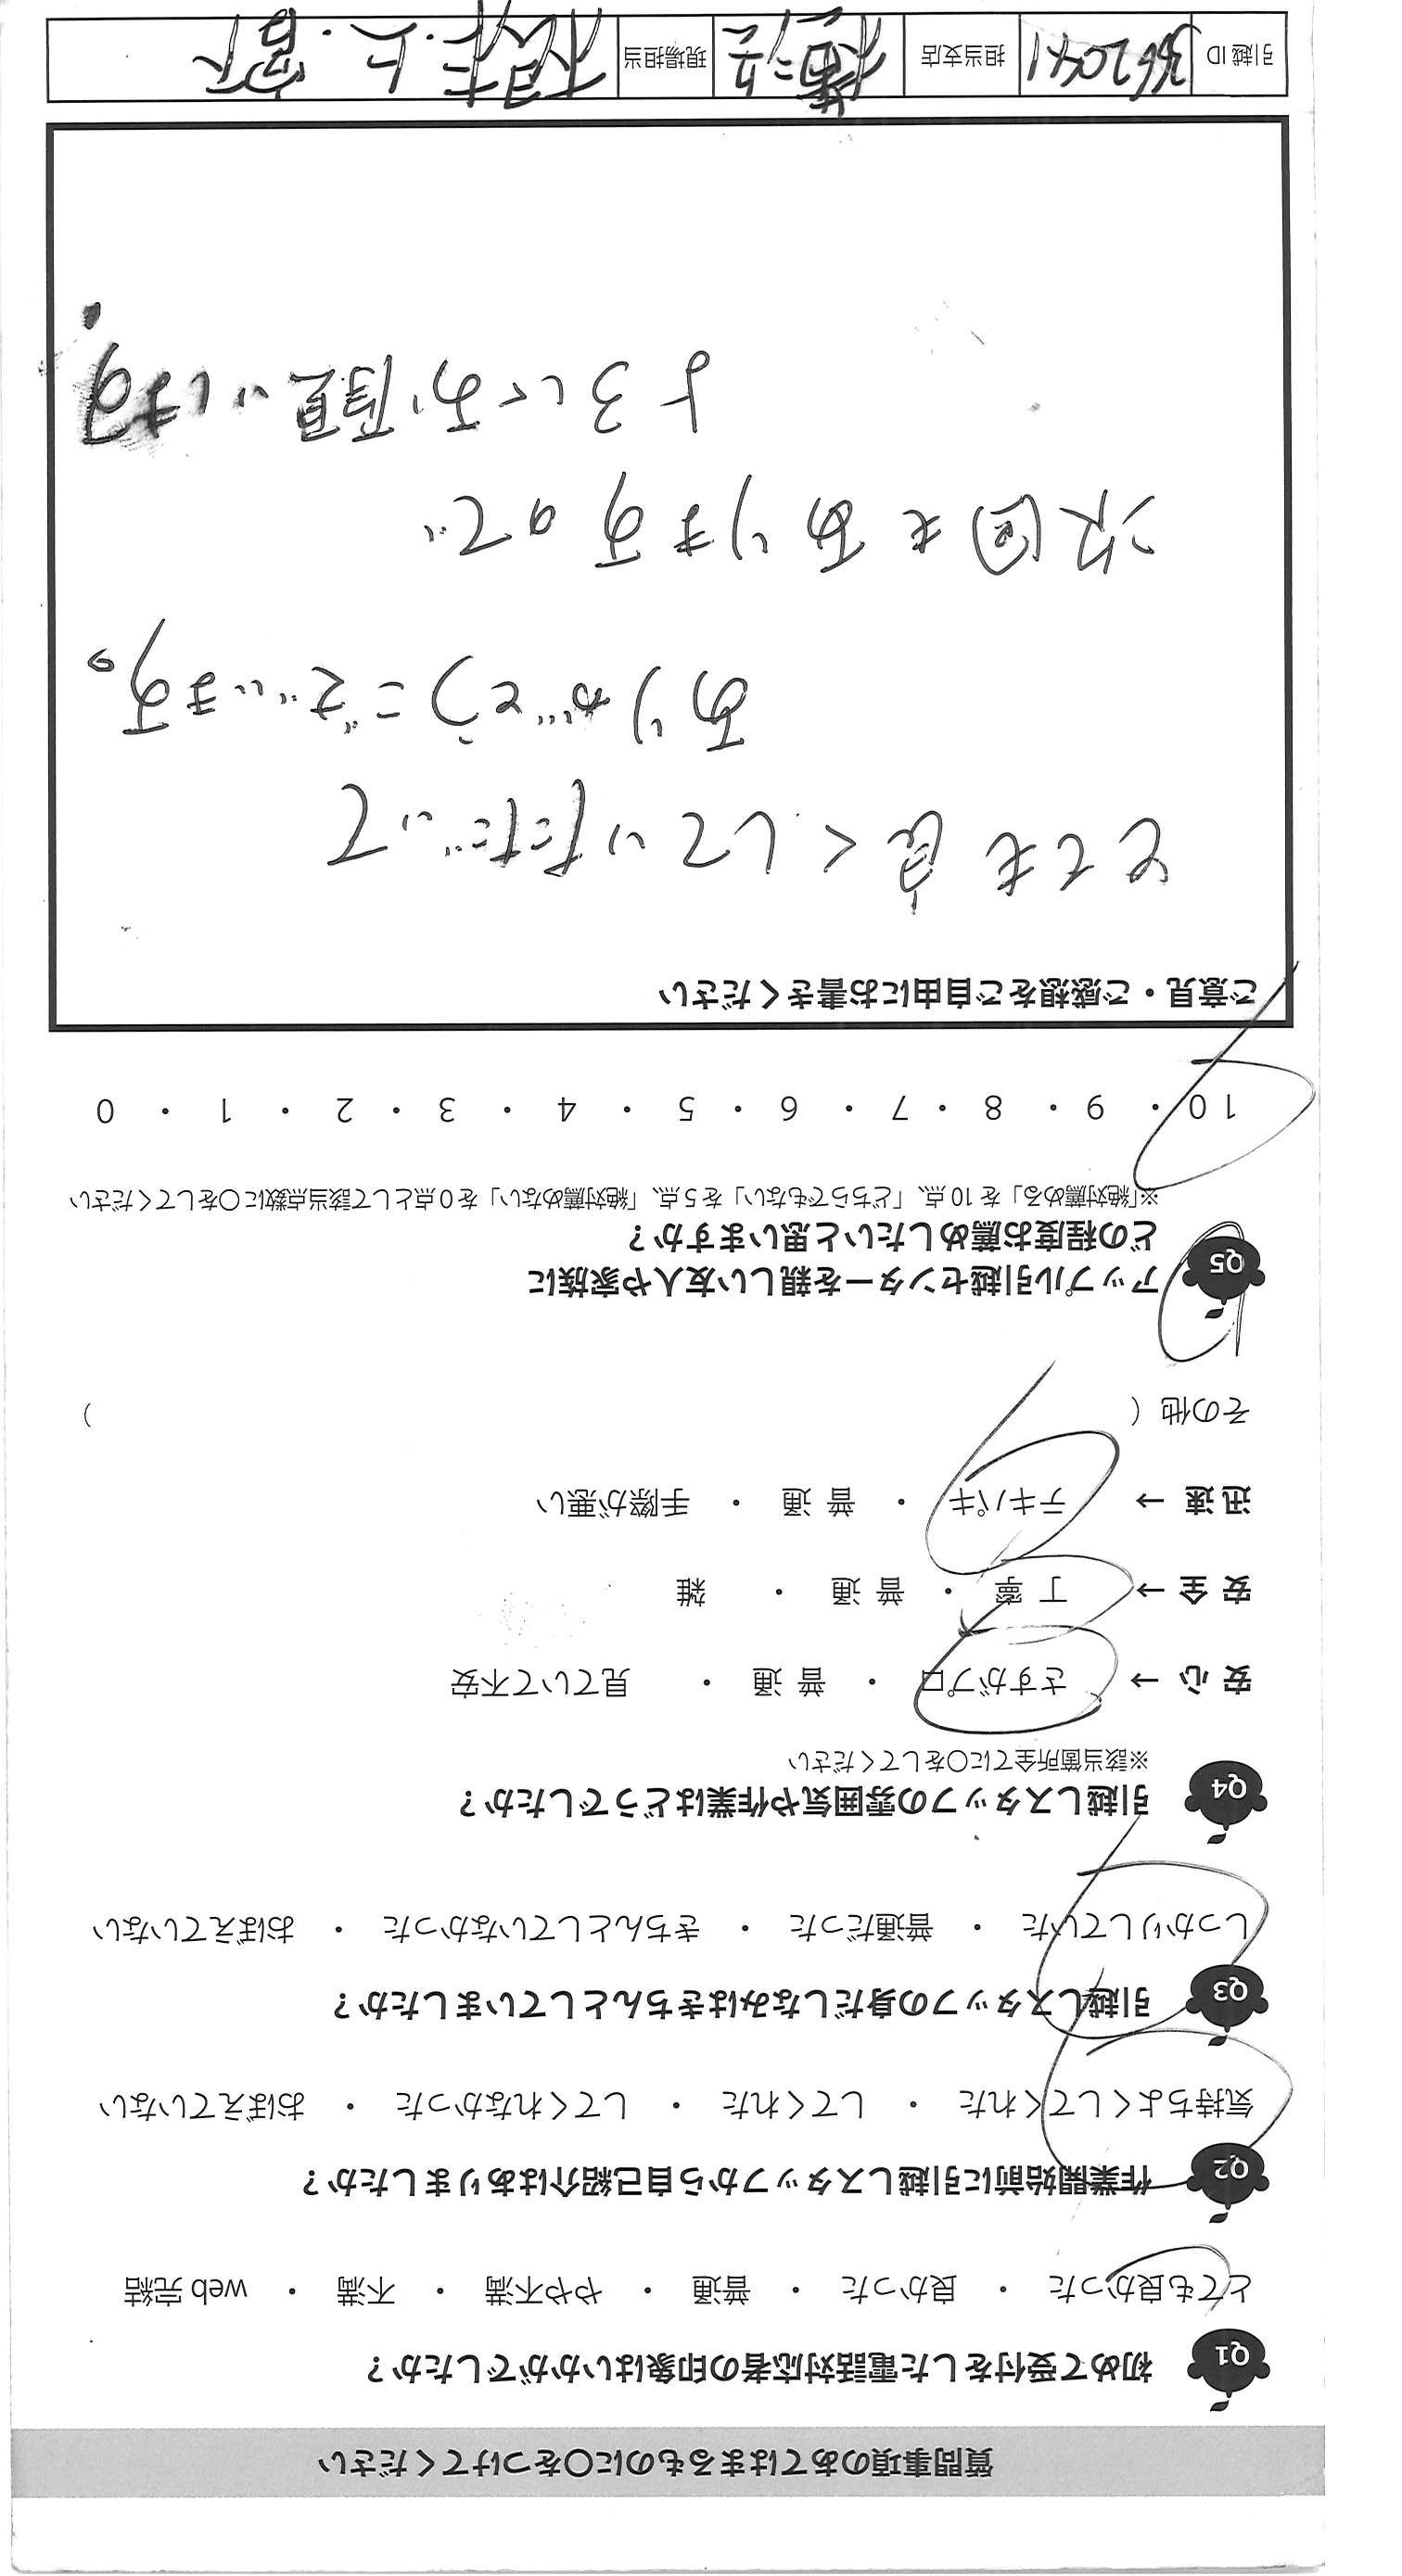 質問事項のあてはまるものに〇をつけてください
Q1 初めて受付をした電話対応者の印象はいかがでしたか？
とても良かった ・ 良かった ・ 普通 ・ やや不満 ・ 不満 ・ web完結
Q2 作業開始前に引越しスタッフから自己紹介はありましたか？
気持ちよくしてくれた ・ してくれた ・ してくれなかった ・ おぼえていない
Q3 引越しスタッフの身だしなみはきちんとしていましたか？
しっかりしていた ・ 普通だった ・ きちんとしていなかった ・ おぼえていない
Q4 引越しスタッフの雰囲気や作業はどうでしたか？
※該当箇所全てに〇をしてください
安心 → さすがプロ ・ 普通 ・ 見ていて不安
安全 → 丁寧 ・ 普通 ・ 雑
迅速 → テキパキ ・ 普通 ・ 手際が悪い
その他（ ）
Q5 アップル引越センターを親しい友人や家族に
どの程度お薦めしたいと思いますか？
※「絶対薦める」を10点、「どちらでもない」を5点、「絶対薦めない」を0点として該当点数に〇をしてください
10 ・ 9 ・ 8 ・ 7 ・ 6 ・ 5 ・ 4 ・ 3 ・ 2 ・ 1 ・ 0
ご意見・ご感想をご自由にお書きください
とても良くしていただいて
ありがとうございます。
次回もありますので
よろしくお願いします
引越ID 362041 担当支店 横浜 現場担当